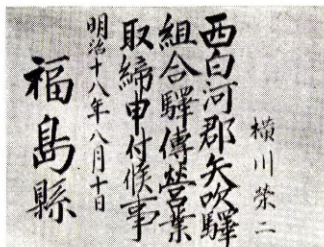 横川荣二
西白河郡矢吹驛
組合驛傳營業
取締申付候事
明治十八年八月十日
福島縣